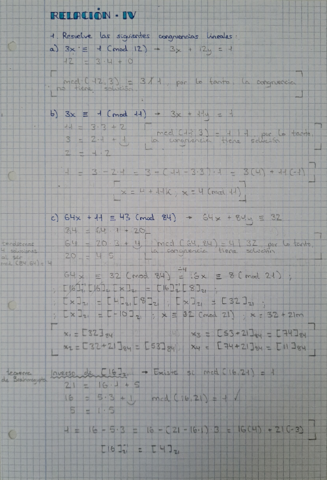 RELACIÓN - IV
1 Resuelve las siguientes congruencias lineales:
a) 3x ≡ 1 (mod 12) → 3x + 12y = 1
12 = 3·4 + 0
mcd (12,3) = 3 ∤ 1 por lo tanto la congruencia
no tiene solución
b) 3x ≡ 1 (mod 11) → 3x + 11y = 1
11 = 3·3 + 2
3 = 2·1 + 1
2 = 1·2
mcd (11,3) = 1 | 1 por lo tanto
la congruencia tiene solución
1 = 3 - 2·1 = 3 - (11 - 3·3)·1 = 3(4) + 11(-1)
x = 4 + 11k, x = 4 (mod 11)
c) 64x + 11 ≡ 43 (mod 84) → 64x + 84y = 32
84 = 64·1 + 20
64 = 20·3 + 4
20 = 4·5
mcd (64,84) = 4 | 32 por lo tanto,
la congruencia tiene solución
64x ≡ 32 (mod 84) → 16x ≡ 8 (mod 21)
[x]₂₁ = [4]₂₁ [8]₂₁ ; [x]₂₁ = [32]₂₁
[x]₂₁ = [-10]₂₁ ; x ≡ 32 (mod 21) ; x = 32 + 21m
x₁ = [32]₈₄ x₃ = [53+21]₈₄ = [74]₈₄
x₂ = [32+21]₈₄ = [53]₈₄ x₄ = [74+21]₈₄ = [11]₈₄
inverso de [16]₂₁ → Existe si mcd (16,21) = 1
21 = 16·1 + 5
16 = 5·3 + 1 mcd (16,21) = 1 ✓
5 = 1·5
1 = 16 - 5·3 = 16 - (21 - 16·1) 3 = 16(4) + 21(-3)
[16]₂₁⁻¹ = [4]₂₁